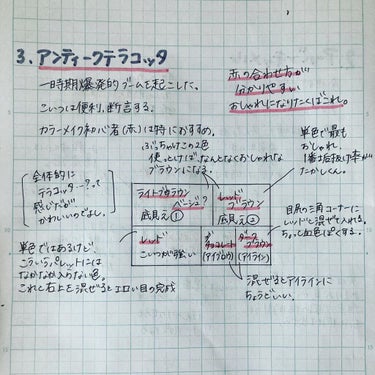 3、アンティークテラコッタ
一時期爆発的ブームを起こした。
こいつは便利。断言する。
カラーメイク初心者(赤)は特におすすめ。
赤の合わせ方が
分かりやすい
おしゃれになりたくばこれ。
ぶっちゃけこの2色
使っとけば、なんとなくおしゃれな
ブラウンになる。
単色で最も
おしゃれ。
1番お仕事
たかしくん。
全体的に
テラコッター?って
感じだが
かわいいのでよし。
ライトブラウン
ベージュ?
底見え①
レッド
ブラウン
底見え②
目尻の三角コーナーに
レッドと混ぜて入れる。
ちょっと血色ぽくする。
レッド
こいつが強い
チョコレート
(アイブロウ)
ダーク
ブラウン
(アイライン)
単色ではあるけど
こういうパレットには
なかなか入らない色。
これと右上を混ぜるとエロい目の完成
混ぜるとアイラインに
ちょうどいい。